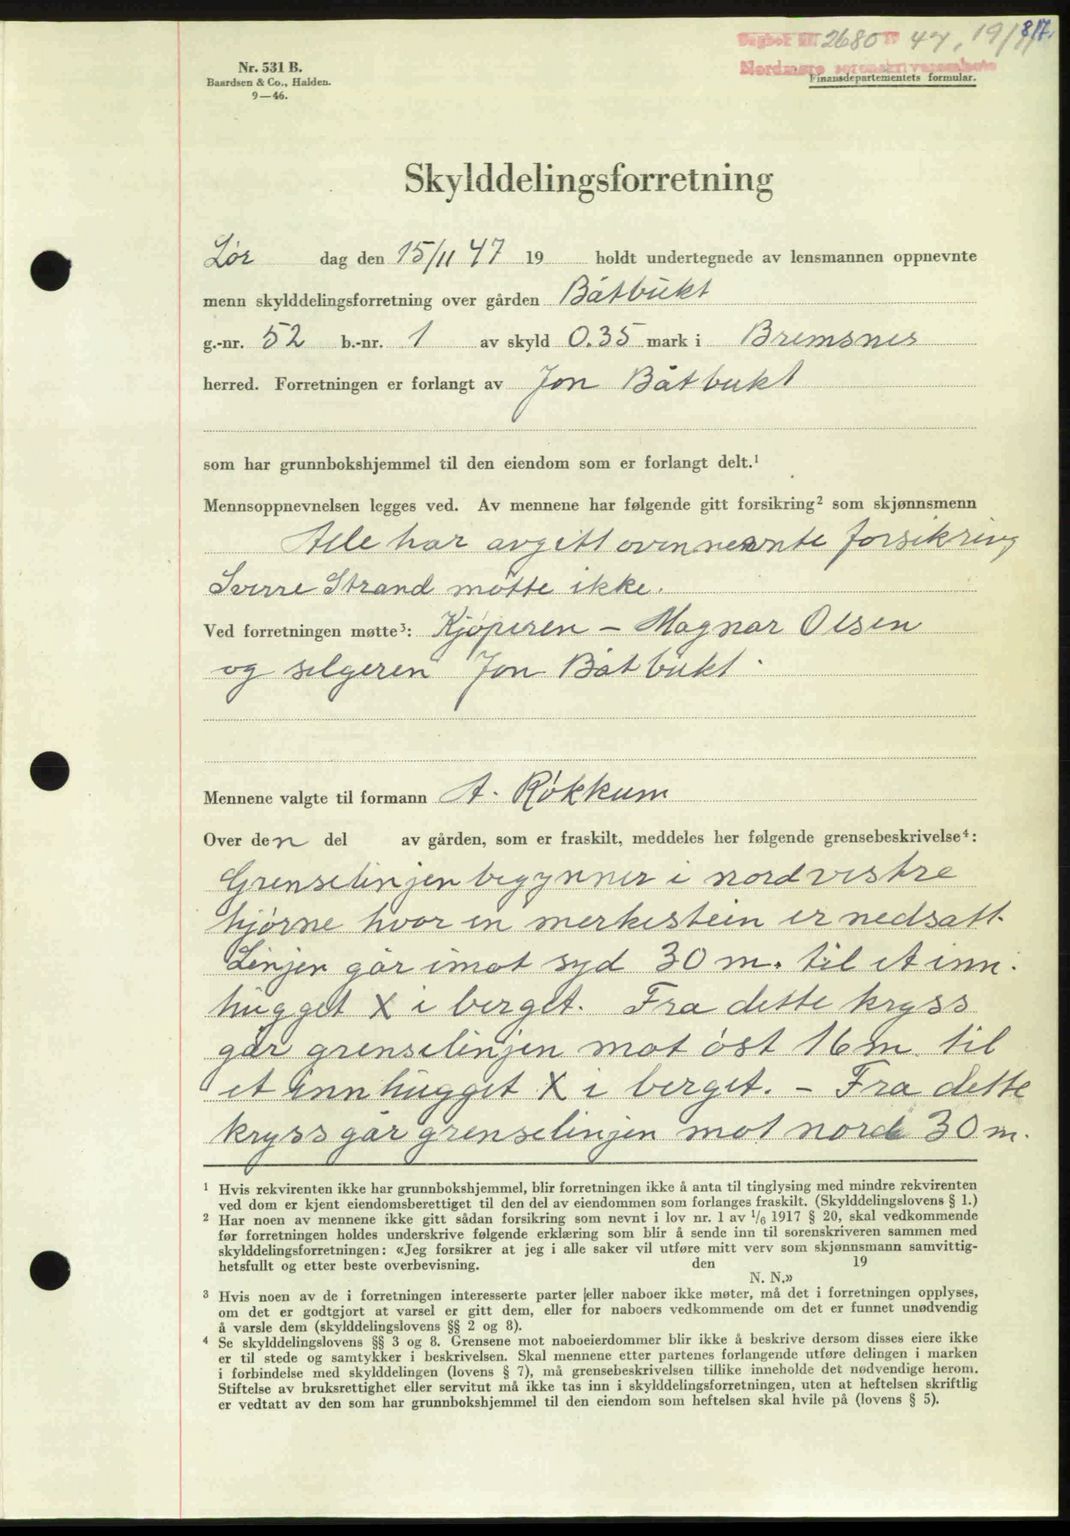 Dagbok nr. 2680 19 47, 19/11 817.
Nordmøre sorenskriverembete
Nr. 531 B.
Baardsen & Co., Halden.
9—46.
Finansdepartementets formular.
Skylddelingsforretning
Lør dag den 15/11 47 19 holdt undertegnede av lensmannen oppnevnte
menn skylddelingsforretning over gården Båtbukt
g.-nr. 52 b.-nr. 1 av skyld 0.35 mark i Bremsnes
herred. Forretningen er forlangt av Jon Båtbukt
som har grunnbokshjemmel til den eiendom som er forlangt delt.¹
Mennsoppnevnelsen legges ved. Av mennene har følgende gitt forsikring² som skjønnsmenn
Alle har avgitt ovennevnte forsikring
Sverre Strand møtte ikke.
Ved forretningen møtte³: Kjøperen – Magnar Olsen
og selgeren Jon Båtbukt.
Mennene valgte til formann A. Røkkum
Over den del av gården, som er fraskilt, meddeles her følgende grensebeskrivelse⁴:
Grenselinjen begynner i nordvestre
hjørne hvor en merkestein er nedsatt.
Linjen går imot syd 30 m. til et inn-
hugget X i berget. Fra dette kryss
går grenselinjen mot øst 16 m. til
et innhugget X i berget. – Fra dette
kryss går grenselinjen mot nord 30 m.
¹ Hvis rekvirenten ikke har grunnbokshjemmel, blir forretningen ikke å anta til tinglysing med mindre rekvirenten
ved dom er kjent eiendomsberettiget til den del av eiendommen som forlanges fraskilt. (Skylddelingslovens § 1.)
² Har noen av mennene ikke gitt sådan forsikring som nevnt i lov nr. 1 av 1/6 1917 § 20, skal vedkommende
før forretningen holdes underskrive følgende erklæring som blir å sende inn til sorenskriveren sammen med
skylddelingsforretningen: «Jeg forsikrer at jeg i alle saker vil utføre mitt verv som skjønnsmann samvittig-
hetsfullt og etter beste overbevisning. den 19
N. N.»
³ Hvis noen av de i forretningen interesserte parter eller naboer ikke møter, må det i forretningen opplyses,
om det er godtgjort at varsel er gitt dem, eller for naboers vedkommende om det er funnet unødvendig
å varsle dem (skylddelingslovens §§ 2 og 8).
⁴ Se skylddelingslovens §§ 3 og 8. Grensene mot naboeierdommer blir ikke å beskrive dersom disses eiere ikke
er til stede og samtykker i beskrivelsen. Skal mennene etter partenes forlangende utføre delingen i marken
i forbindelse med skylddelingen (lovens § 7), må grensebeskrivelsen tillike inneholde det nødvendige herom.
Stiftelse av bruksrettighet eller servitut må ikke tas inn i skylddelingsforretningen, uten at heftelsen skriftlig
er vedtatt av den som har grunnbokshjemmel til den eiendom som heftelsen skal hvile på (lovens § 5).